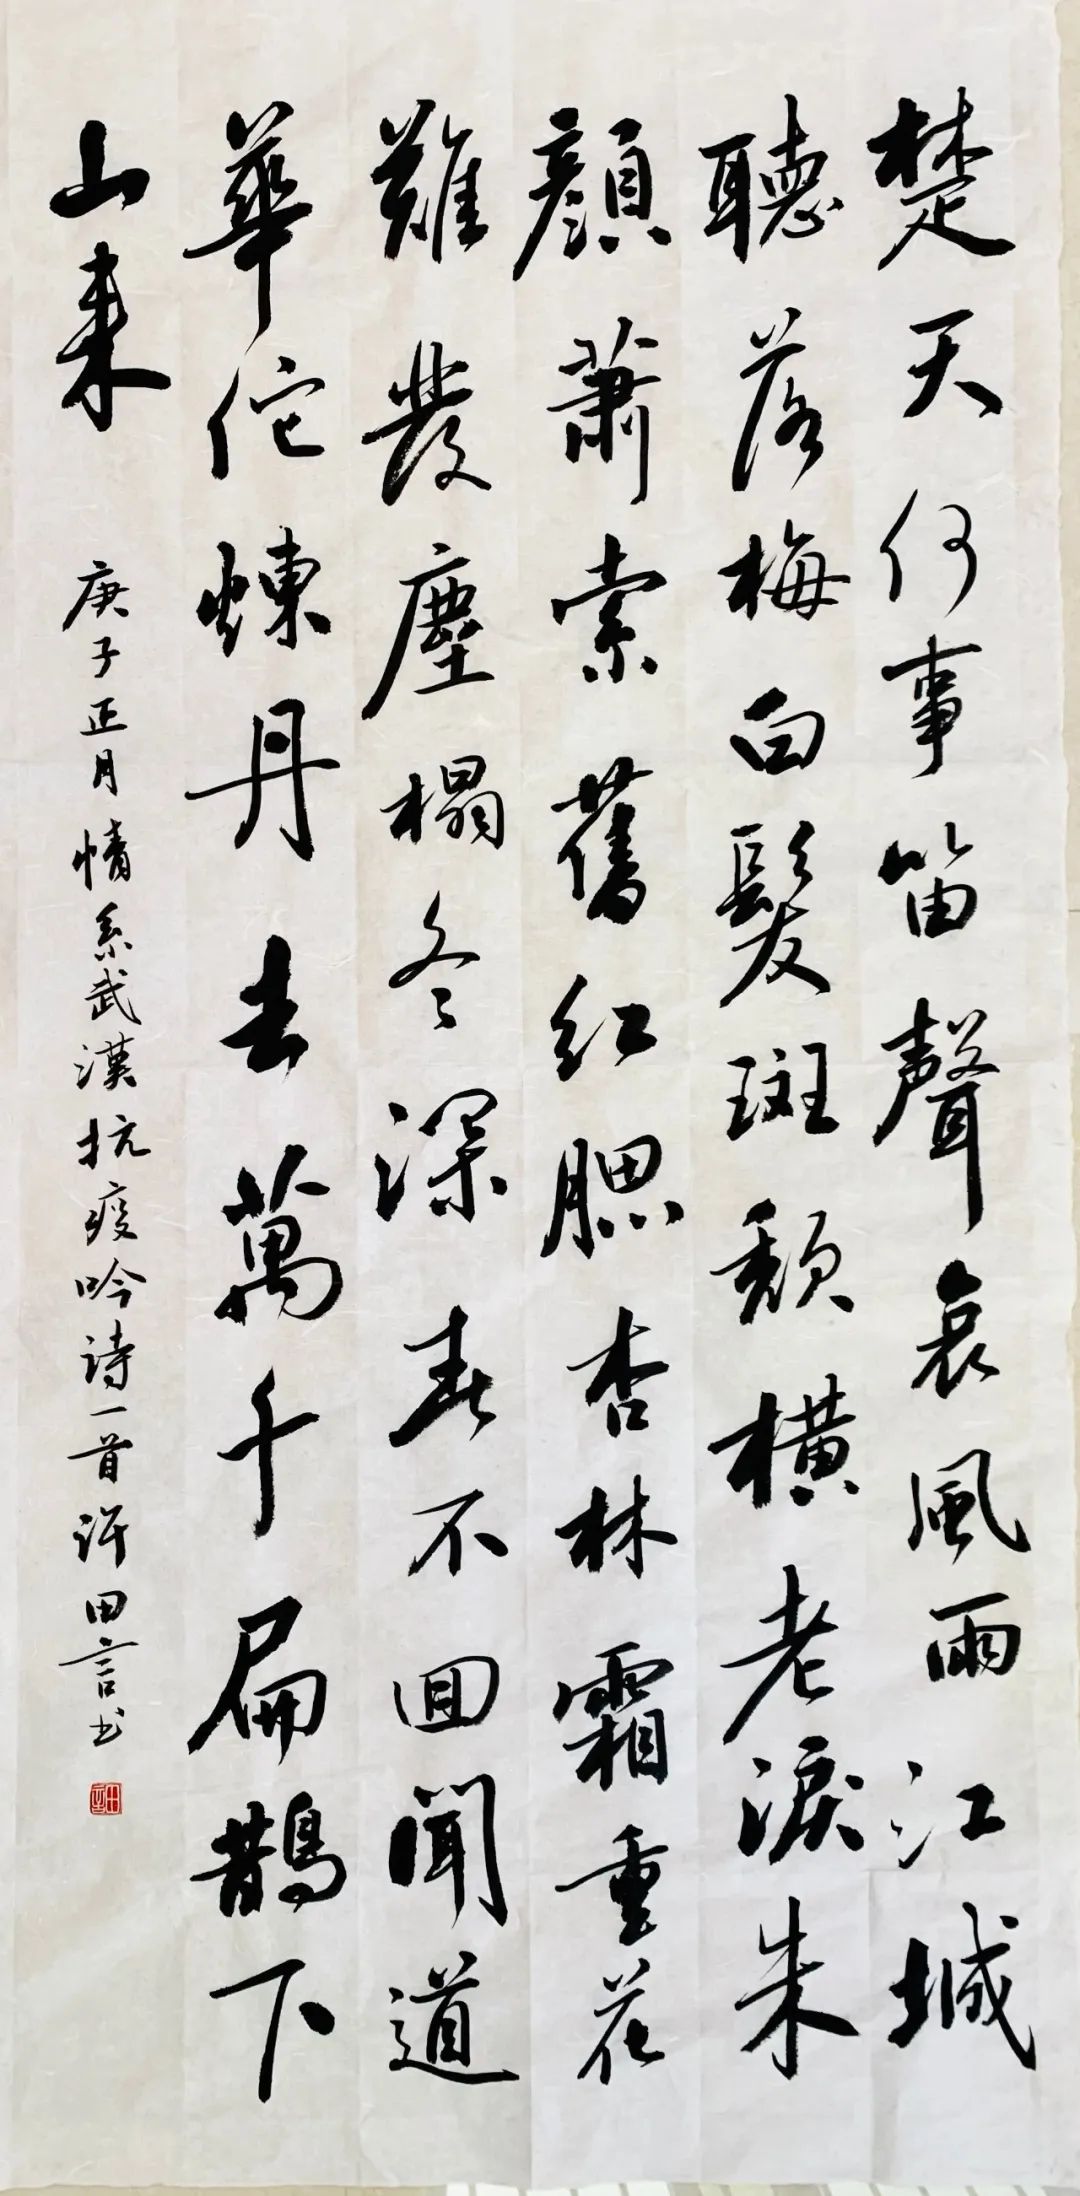 楚天何事笛聲哀風雨江城
聽落梅白髮斑斑頰橫老淚朱
顏蕭索舊紅腮杏林霜重花
難發塵榻冬深春不回聞道
華佗煉丹去萬千扁鵲下
山來
庚子正月情系武漢抗疫吟詩一首許田言书